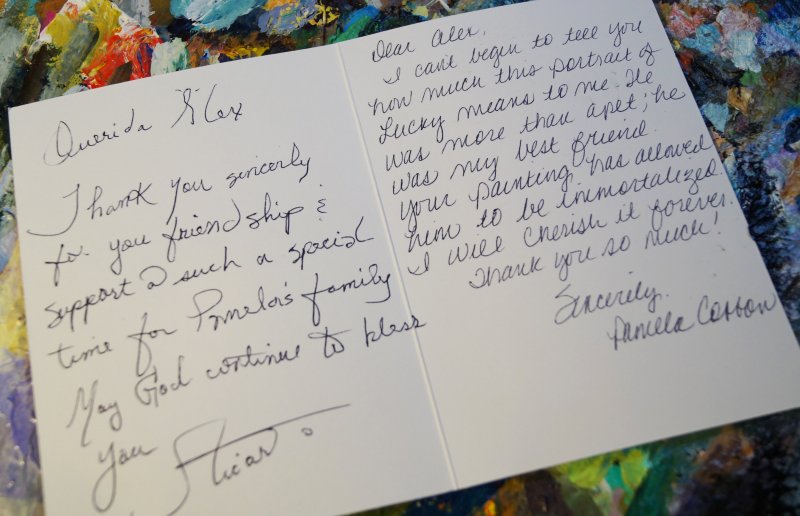 Querida Alex
Thank you sincerly
for you friendship &
support @ such a special
time for Pamela's family
May God continue to bless
you
Dear Alex,
I can't begin to tell you
how much this portrait of
Lucky means to me. He
was more than a pet; he
was my best friend.
Your painting has allowed
him to be immortalized.
I will cherish it forever.
Thank you so much!
Sincerely,
Pamela